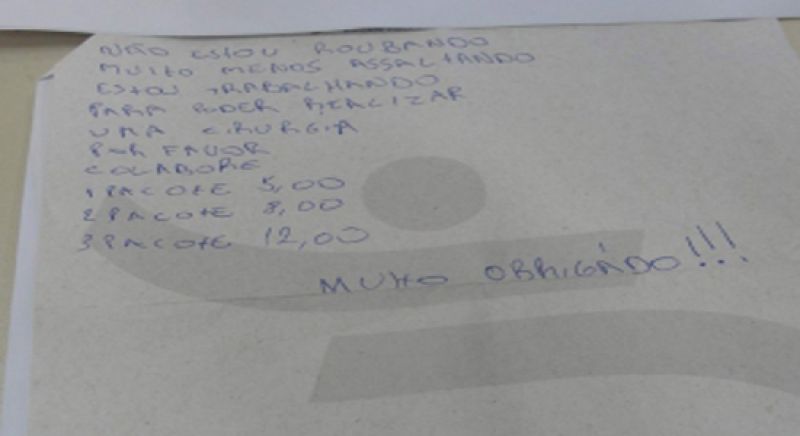 NÃO ESTOU ROUBANDO
MUITO MENOS ASSALTANDO
ESTOU TRABALHANDO
PARA PODER REALIZAR
UMA CIRURGIA
POR FAVOR
COLABORE
1 PACOTE 5,00
2 PACOTE 8,00
3 PACOTE 12,00
MUITO OBRIGÁDO!!!